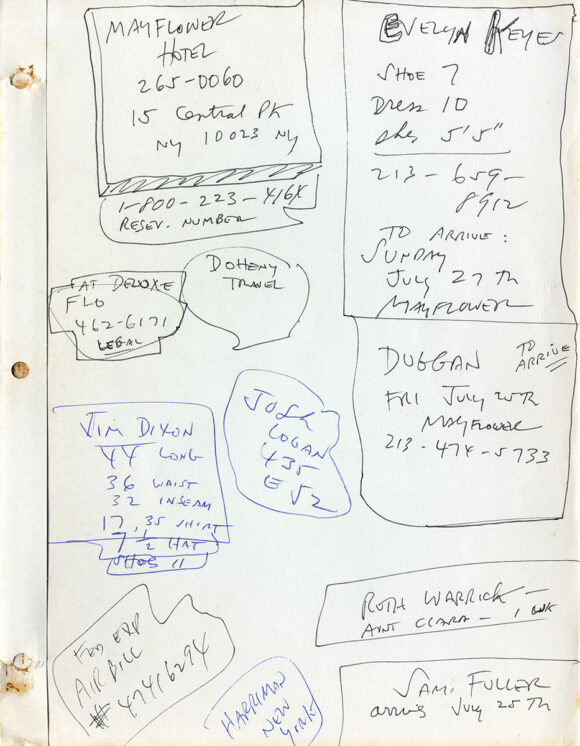 MAYFLOWER
HOTEL
265-0060
15 Central Pk
NY 10023 NY
1-800-223-416X
RESEV. NUMBER
EVELYN KEYES
SHOE 7
Dress 10
5'5"
213-659-
8912
TO ARRIVE:
SUNDAY
July 27th
MAYFLOWER
AT DELUXE
FLO
462-6171
LEGAL
DOHENY
TRAVEL
DUGGAN TO
ARRIVE
FRI July 25th
MAYFLOWER
213-474-5733
JIM DIXON
44 LONG
36 WAIST
32 INSEAM
17, 35 SHIRT
7 1/2 HAT
SHOE 11
JOSH
LOGAN
435
E 52
FED EXP
AIR BILL
# 47416294
HARRIMAN
NEW
YORK
RUTH WARRICK -
AUNT CLARA - 1
SAM. FULLER
July 25th